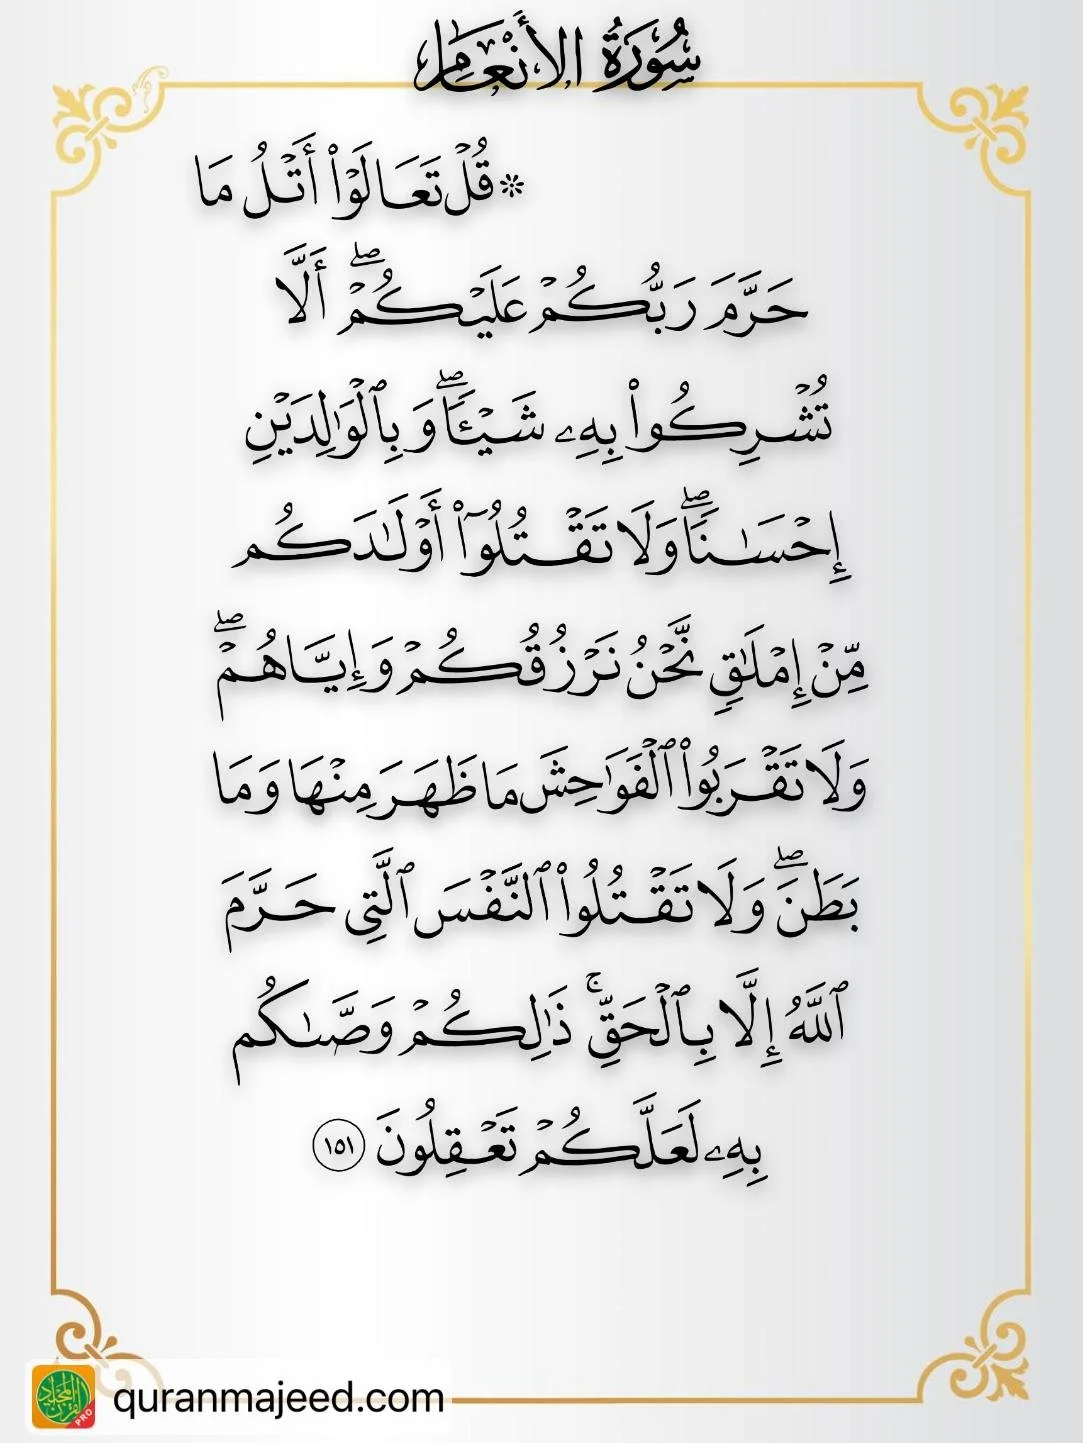 سُورَةُ الأَنْعَامِ
۞ قُلۡ تَعَالَوۡاْ أَتۡلُ مَا
حَرَّمَ رَبُّكُمۡ عَلَيۡكُمۡۖ أَلَّا
تُشۡرِكُواْ بِهِۦ شَيۡـٔٗاۖ وَبِٱلۡوَٰلِدَيۡنِ
إِحۡسَٰنٗاۖ وَلَا تَقۡتُلُوٓاْ أَوۡلَٰدَكُم
مِّنۡ إِمۡلَٰقٖ نَّحۡنُ نَرۡزُقُكُمۡ وَإِيَّاهُمۡۖ
وَلَا تَقۡرَبُواْ ٱلۡفَوَٰحِشَ مَا ظَهَرَ مِنۡهَا وَمَا
بَطَنَۖ وَلَا تَقۡتُلُواْ ٱلنَّفۡسَ ٱلَّتِي حَرَّمَ
ٱللَّهُ إِلَّا بِٱلۡحَقِّۚ ذَٰلِكُمۡ وَصَّىٰكُم
بِهِۦ لَعَلَّكُمۡ تَعۡقِلُونَ ١٥١
quranmajeed.com